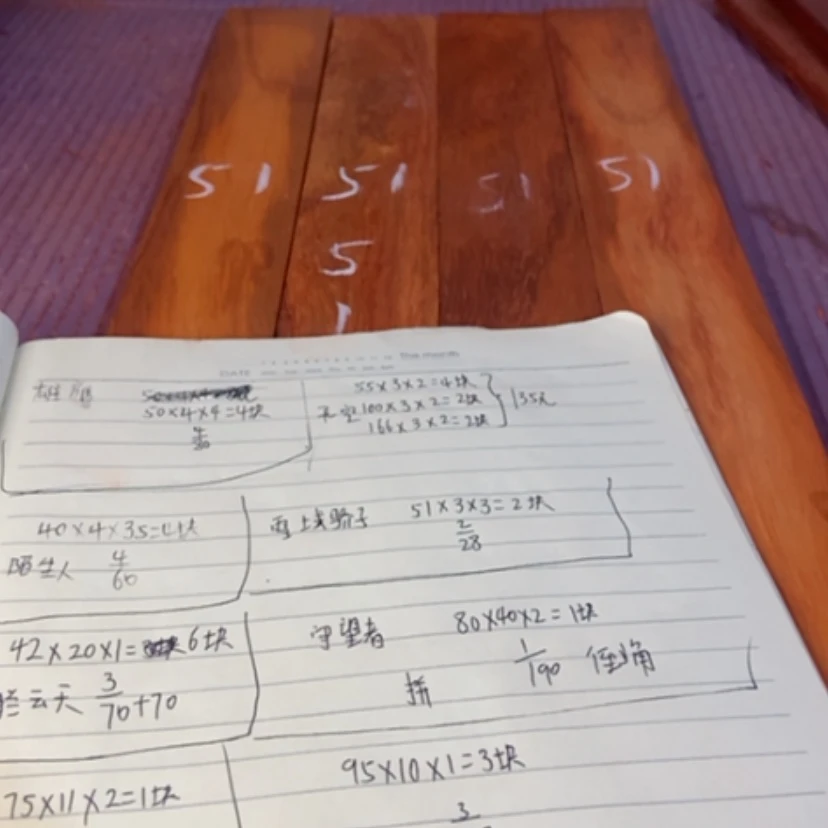 51 51 51 51
5
1
DATE
This month
50×4×4=4块
55×3×2=4块
天空 100×3×2=2块
166×3×2=2块
135元
40×4×35=4块
陌生人 4/60
马上战骄子 51×3×3=2块
2/28
42×20×1=6块
云天 3/70+70
守望者 80×40×2=1块
拼 1/190 倒角
75×11×2=1块
95×10×1=3块
3